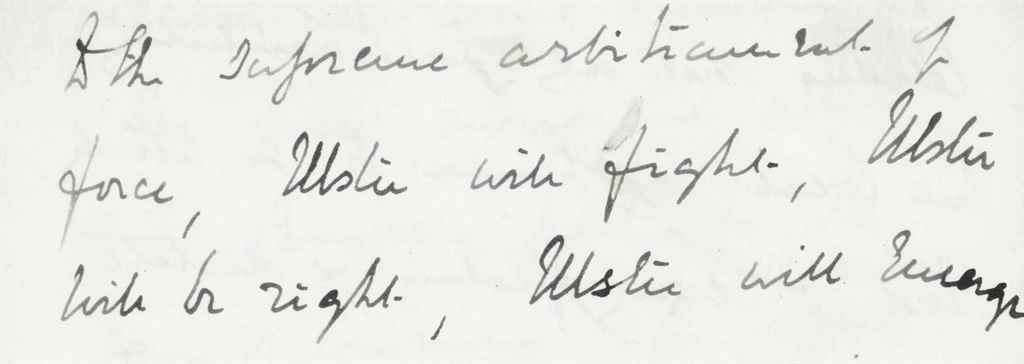 to the supreme arbitrament of
force, Ulster will fight, Ulster
will be right, Ulster will emerge